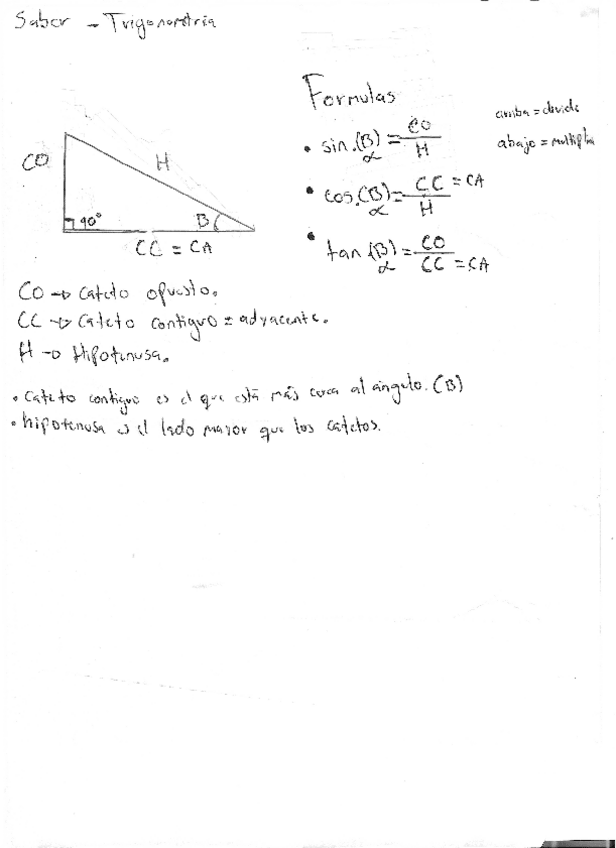 Saber - Trigonometría
Formulas
arriba = divide
abajo = multiplica
• sin.(B) = CO
α H
• cos.(B) = CC = CA
α H
• tan (B) = CO
α CC = CA
CO
H
90°
B
CC = CA
CO → cateto opuesto.
CC → cateto contiguo = adyacente.
H → Hipotenusa.
• Cateto contiguo es el que está más cerca al angulo. (B)
• hipotenusa es el lado mayor que los catetos.